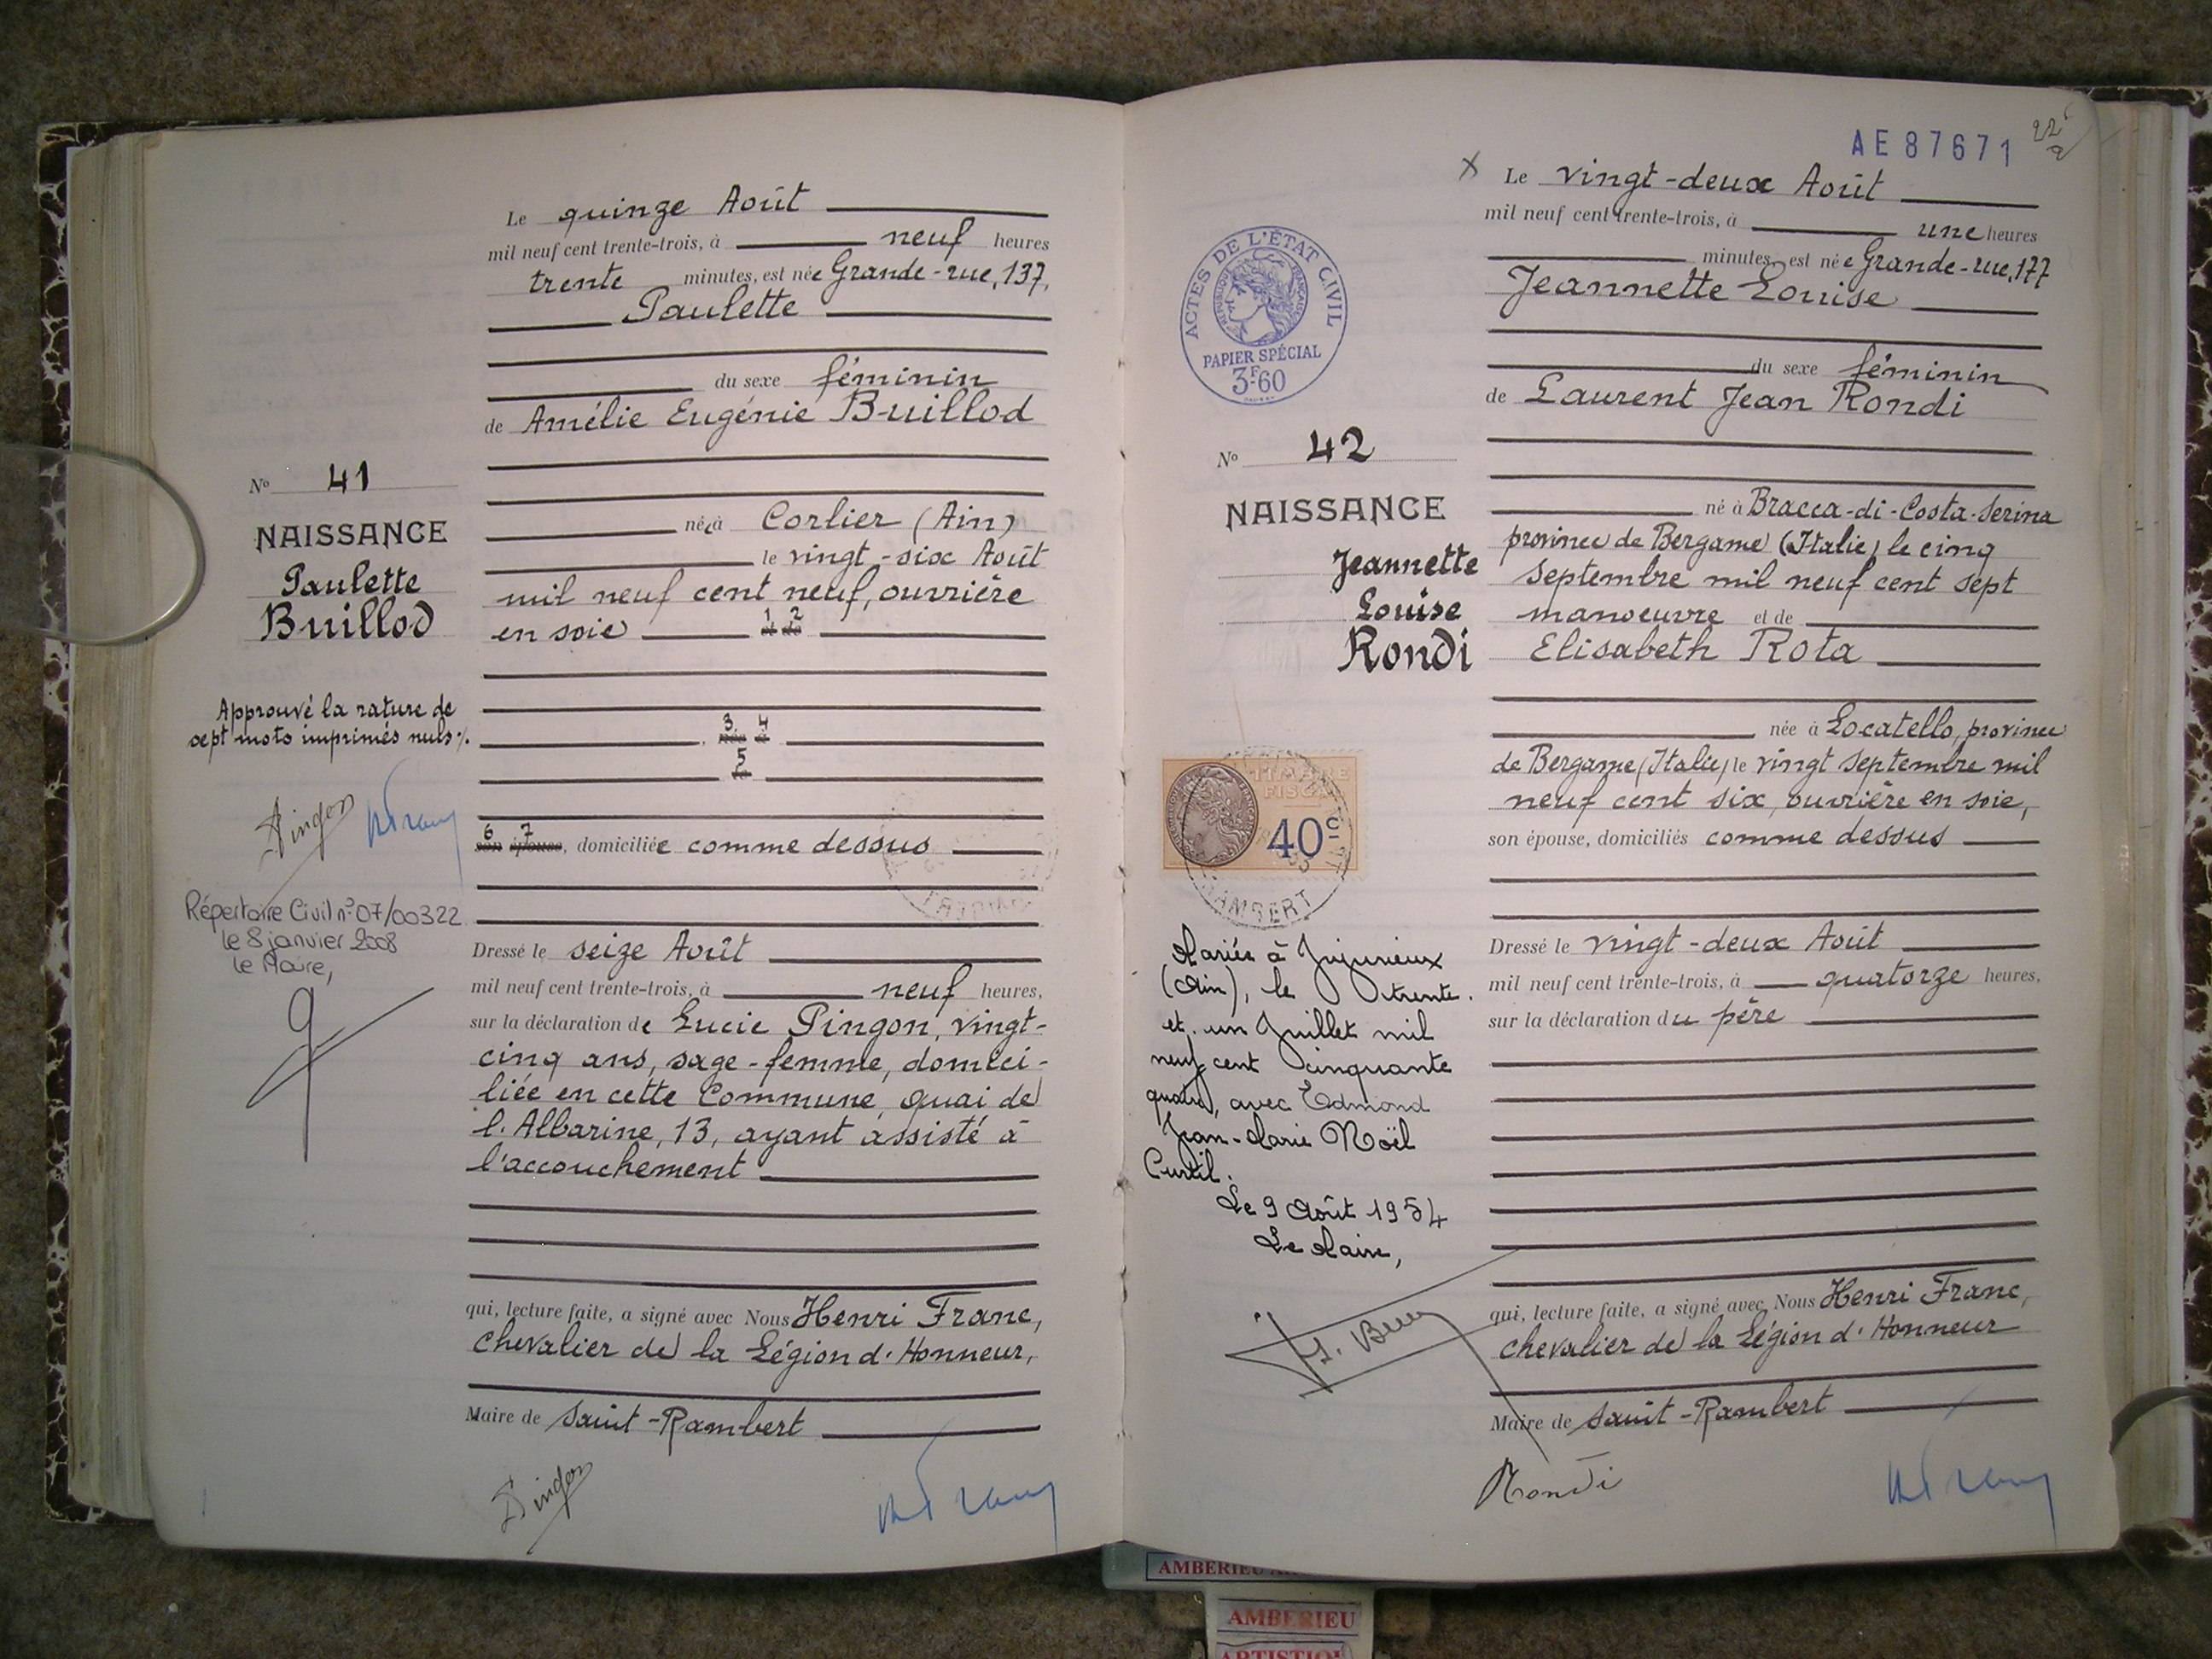 Le quinze Août
mil neuf cent trente-trois, à neuf heures
trente minutes, est née Grande-rue, 137,
Paulette
du sexe féminin
de Amélie Eugénie Buillod
née à Corlier (Ain)
le vingt-six Août
mil neuf cent neuf, ouvrière
en soie 1 2 et de
3 4 née à
5 le
6 7 son épouse, domiciliée comme dessus
Dressé le seize Août
mil neuf cent trente-trois, à neuf heures,
sur la déclaration de Lucie Pingon, vingt-
cinq ans, sage-femme, domici-
liée en cette Commune, quai de
l'Albarine, 13, ayant assisté à
l'accouchement
qui, lecture faite, a signé avec Nous Henri Franc,
Chevalier de la Légion d'Honneur,
Maire de Saint-Rambert
Pingon
No 41
NAISSANCE
Paulette
Buillod
Approuvé la rature de
sept mots imprimés nuls ./.
Pingon
Répertoire Civil n° 07/00322
le 8 janvier 2008
le Maire,
AE87671
Le vingt-deux Août
mil neuf cent trente-trois, à une heures
minutes, est née Grande-rue, 177
Jeannette Louise
du sexe féminin
de Laurent Jean Rondi
né à Bracca-di-Costa-Serina
province de Bergame (Italie) le cinq
septembre mil neuf cent sept
manoeuvre et de
Elisabeth Rota
née à Locatello, province
de Bergame (Italie) le vingt septembre mil
neuf cent six, ouvrière en soie,
son épouse, domiciliés comme dessus
Dressé le vingt-deux Août
mil neuf cent trente-trois, à quatorze heures,
sur la déclaration du père
qui, lecture faite, a signé avec Nous Henri Franc,
chevalier de la Légion d'Honneur
Maire de Saint-Rambert
Rondi
ACTES DE L'ÉTAT CIVIL
RÉPUBLIQUE FRANÇAISE
PAPIER SPÉCIAL
3F60
No 42
NAISSANCE
Jeannette
Louise
Rondi
TIMBRE
FISCAL
40c
Mariée à Jujurieux
(Ain), le trente
et un Juillet mil
neuf cent cinquante
quatre, avec Edmond
Jean-Marie Noël
Curtil.
Le 9 Août 1954
Le Maire,
AMBERIEU
AMBERIEU
ARTISTIQU